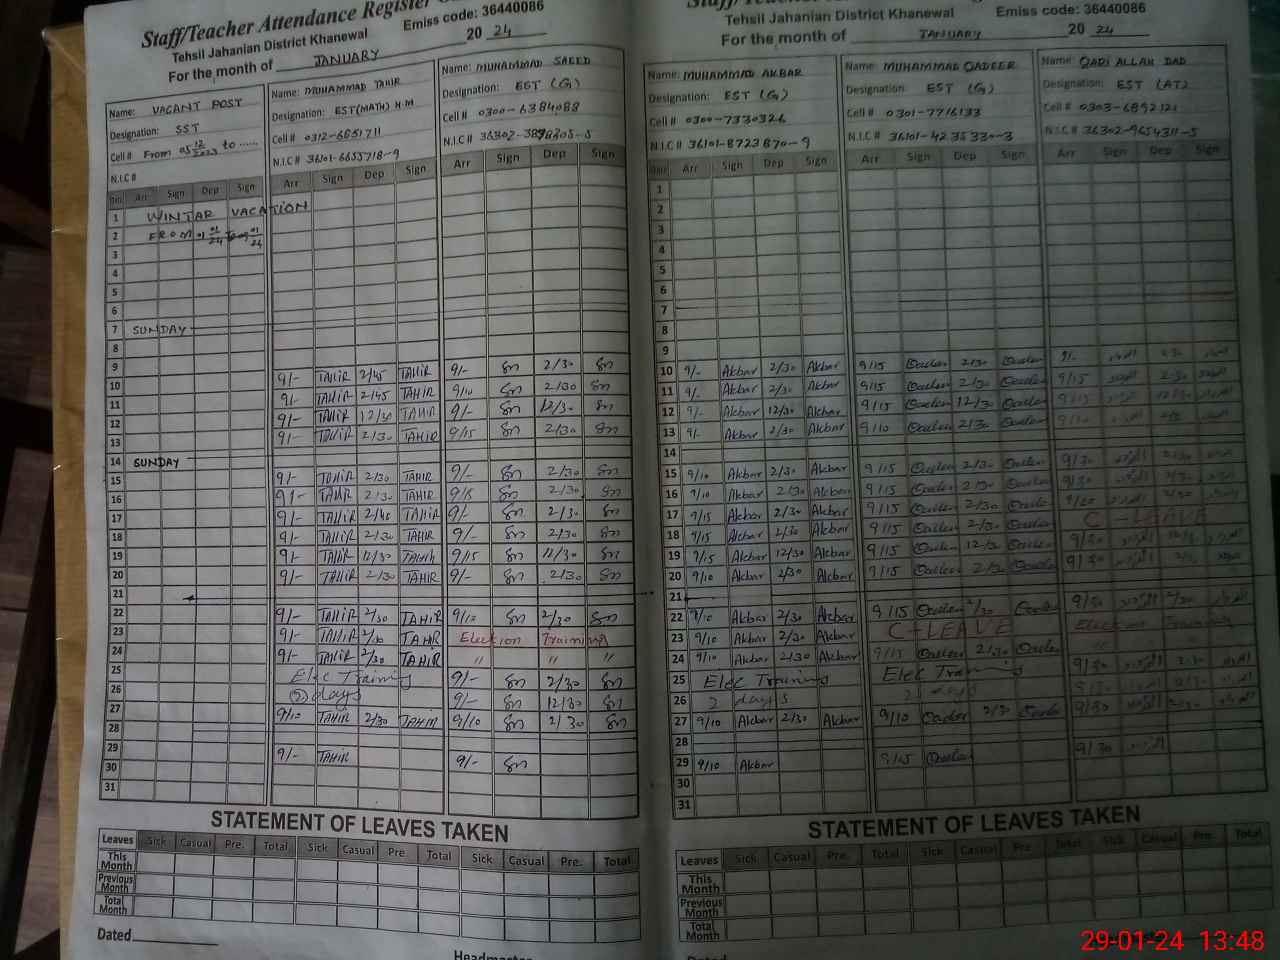 Staff/Teacher Attendance Register
Tehsil Jahanian District Khanewal Emiss code: 36440086
For the month of JANUARY 20 24
Name: VACANT POST
Designation: SST
Cell # From 05 12 2023 to ......
N.I.C #
Name: MUHAMMAD TAHIR
Designation: EST (MATH) H.M
Cell # 0312-6651711
N.I.C # 36101-6655718-9
Name: MUHAMMAD SAEED
Designation: EST (G)
Cell # 0300-6384088
Arr Sign Dep Sign Arr Sign Dep Sign Arr Sign Dep Sign
1 WINTAR VACATION
2 FROM 01 01 24
3
4
5
6
7 SUNDAY
8
9
10 9/- TAHIR 2/45 TAHIR 9/- Sn 2/30 Sn
11 9/- TAHIR 2/45 TAHIR 9/10 Sn 2/30 Sn
12 9/- TAHIR 12/30 TAHIR 9/- Sn 12/30 Sn
13 9/- TAHIR 2/30 TAHIR 9/15 Sn 2/30 Sn
14 SUNDAY
15 9/- TAHIR 2/30 TAHIR 9/- Sn 2/30 Sn
16 9/- TAHIR 2/30 TAHIR 9/15 Sn 2/30 Sn
17 9/- TAHIR 2/40 TAHIR 9/- Sn 2/30 Sn
18 9/- TAHIR 2/30 TAHIR 9/- Sn 2/30 Sn
19 9/- TAHIR 12/30 TAHIR 9/15 Sn Sn
20 9/- TAHIR 2/30 TAHIR 9/- Sn 2/30 Sn
21
22 9/- TAHIR 2/30 TAHIR 9/10 Sn 2/30 Sn
23 9/- TAHIR 2/30 TAHIR Election Training
24 9/- TAHIR 2/30 TAHIR " " "
25 Elec Traing 9/- Sn 2/30 Sn
26 days 9/- Sn 12/30 Sn
27 9/10 TAHIR 2/30 TAHIR 9/10 Sn 2/30 Sn
28
29 9/- TAHIR 9/- Sn
30
31
STATEMENT OF LEAVES TAKEN
Leaves Sick Casual Pre. Total Sick Casual Pre. Total Sick Casual Pre. Total
This Month
Previous Month
Total Month
Dated
Headmaster
Tehsil Jahanian District Khanewal Emiss code: 36440086
For the month of JANUARY 20 24
Name: MUHAMMAD AKBAR
Designation: EST (G)
Cell # 0300-7330326
N.I.C # 36101-8723870-9
Name: MUHAMMAD QADEER
Designation: EST (G)
Cell # 0301-7716133
N.I.C # 36101-4235330-3
Name: QADI ALLAH DAD
Designation: EST (AT)
Cell # 0303-6892121
N.I.C # 36302-9654311-5
Arr Sign Dep Sign Arr Sign Dep Sign Arr Sign Dep Sign
1
2
3
4
5
6
7
8
9
10 9/- Akbar 2/30 Akbar 9/15 Qadeer 2/30 Qadeer 9/- 2/30
11 9/- Akbar 2/30 Akbar 9/15 Qadeer 2/30 Qadeer 9/15 2/30
12 9/- Akbar 12/30 Akbar 9/15 Qadeer 12/30 Qadeer 9/10 12/30
13 9/- Akbar 2/30 Akbar 9/10 Qadeer 2/30 Qadeer 9/10
14
15 9/10 Akbar 2/30 Akbar 9/15 Qadeer 2/30 Qadeer 9/30 2/30
16 9/10 Akbar 2/30 Akbar 9/15 Qadeer 2/30 Qadeer 9/30 2/30
17 9/15 Akbar 2/30 Akbar 9/15 Qadeer 2/30 Qadeer 2/30
18 9/15 Akbar 2/30 Akbar 9/15 Qadeer 2/30 Qadeer C. LEAVE
19 9/15 Akbar 12/30 Akbar 9/15 Qadeer 12/30 Qadeer
20 9/10 Akbar 2/30 Akbar 9/15 Qadeer 2/30 Qadeer
21
22 9/10 Akbar 2/30 Akbar 9/15 Qadeer 2/30 Qadeer 2/30
23 9/10 Akbar 2/30 Akbar C. LEAVE Election Training
24 9/10 Akbar 2/30 Akbar 9/15 Qadeer 2/30 Qadeer
25 Elec Training Elec Training 9/30 2/30
26 2 days 2 days
27 9/10 Akbar 2/30 Akbar 9/10 Qadeer 2/30 Qadeer 9/30 2/30
28
29 9/10 Akbar 9/15 Qadeer 9/30
30
31
STATEMENT OF LEAVES TAKEN
Leaves Sick Casual Pre. Total Sick Casual Pre. Total Sick Casual Pre. Total
This Month
Previous Month
Total Month
29-01-24 13:48